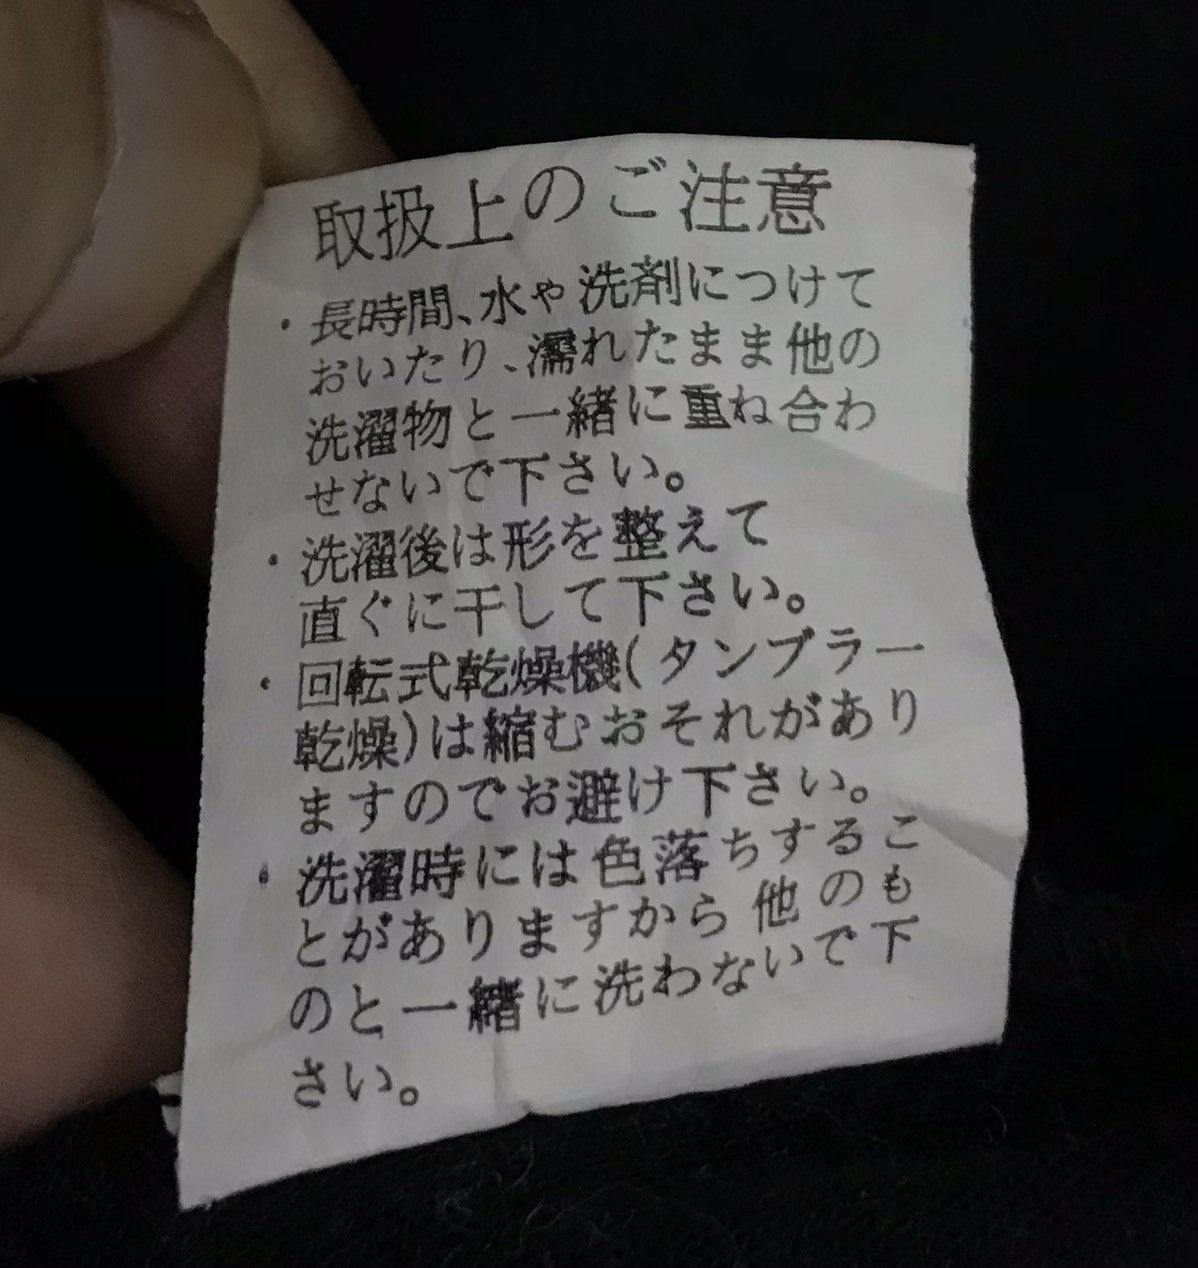 取扱上のご注意
・長時間、水や洗剤につけて
おいたり、濡れたまま他の
洗濯物と一緒に重ね合わ
せないで下さい。
・洗濯後は形を整えて
直ぐに干して下さい。
・回転式乾燥機(タンブラー
乾燥)は縮むおそれがあり
ますのでお避け下さい。
・洗濯時には色落ちするこ
とがありますから他のも
のと一緒に洗わないで下
さい。